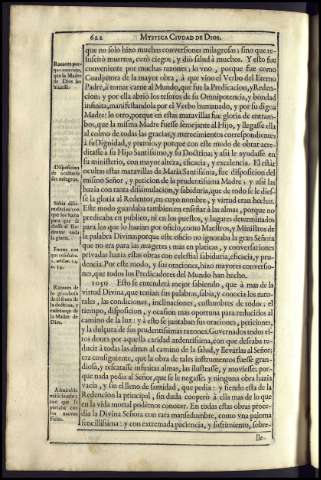 622 MYSTICA CIUDAD DE DIOS.
que no solo hizo muchas conversiones milagrosas; sino que re-
sucitò muertos, curò ciegos, y diò salud à muchos. Y esto fue
conveniente por muchas razones: lo vno, porque fue como
Coadjutora de la mayor obra, à que vino el Verbo del Eterno
Padre, à tomar carne al Mundo, que fue la Predicacion, y Reden-
cion; y por ella abriò los tesoros de su Omnipotencia, y bondad
infinita, manifestandola por el Verbo humanado, y por su digna
Madre: lo otro, porque en estas maravillas fue gloria de entram-
bos, que la misma Madre fuesse semejante al Hijo, y llegasse ella
al colmo de todas las gracias, y merecimientos correspondientes
à su Dignidad, y premio; y porque con este modo de obrar acre-
ditasse à su Hijo Santissimo, y su Doctrina; y assi le ayudasse en
su ministerio, con mayor alteza, eficacia, y excelencia. El estàr
ocultas estas maravillas de Maria Santissima, fue disposicion del
mismo Señor, y peticion de la prudentissima Madre; y assi las
hazia con tanta dissimulacion, y sabiduria, que de todo se le dies-
se la gloria al Redentor, en cuyo nombre, y virtud eran hechas.
Este modo guardaba tambien en enseñar à las almas, porque no
predicaba en publico, ni en los puestos, y lugares determinados
para los que lo hazian por oficio, como Maestros, y Ministros de
la palabra Divina; porque este oficio no ignoraba la gran Señora
que no era para las mugeres; mas en platicas, y conversaciones
privadas hazia estas obras con celestial sabiduria, eficacia, y pru-
dencia. Por este modo, y sus oraciones, hizo mayores conversio-
nes, que todos los Predicadores del Mundo han hecho.
1050 Esto se entenderà mejor sabiendo, que à mas de la
virtud Divina, que tenian sus palabras, sabia, y conocia los natu-
rales, las condiciones, inclinaciones, costumbres de todos; el
tiempo, disposicion, y ocasion mas oportuna para reducirlos al
camino de la luz: y à esto se juntaban sus oraciones, peticiones,
y la dulçura de sus prudentissimas razones. Governados todos es-
tos dones por aquella caridad ardentissima, con que deseaba re-
ducir à todas las almas al camino de la salud, y llevarlas al Señor;
era consiguiente, que la obra de tales instrumentos fuesse gran-
diosa, y rescatasse infinitas almas, las ilustrasse, y moviesse; por-
que nada pedia al Señor, que se le negasse; y ninguna obra hazia
vacia, y sin el lleno de santidad, que pedia: y siendo esta de la
Redencion la principal, sin duda cooperò à ella mas de lo que
en la vida mortal podèmos conocer. En todas estas obras proce-
dia la Divina Señora con rara mansedumbre, como vna paloma
sencillissima: y con extremada paciencia, y sufrimiento, sobre-
lle-